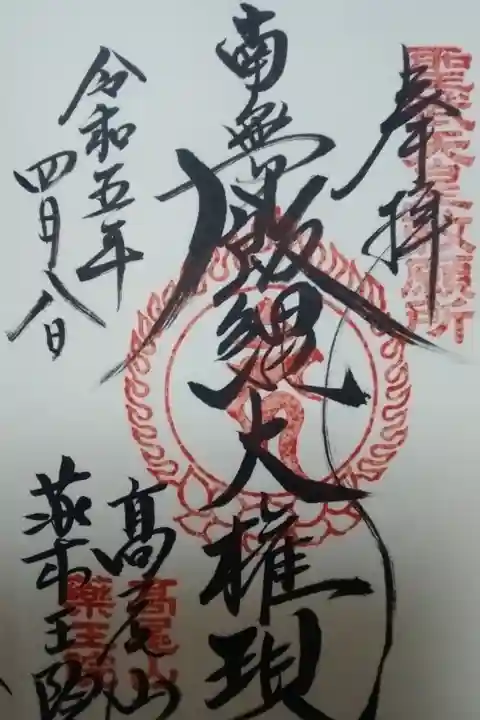 奉拝
聖武天皇敕願所
南無飯縄大権現
令和五年
四月八日
高尾山
薬王院
高尾山
薬王院